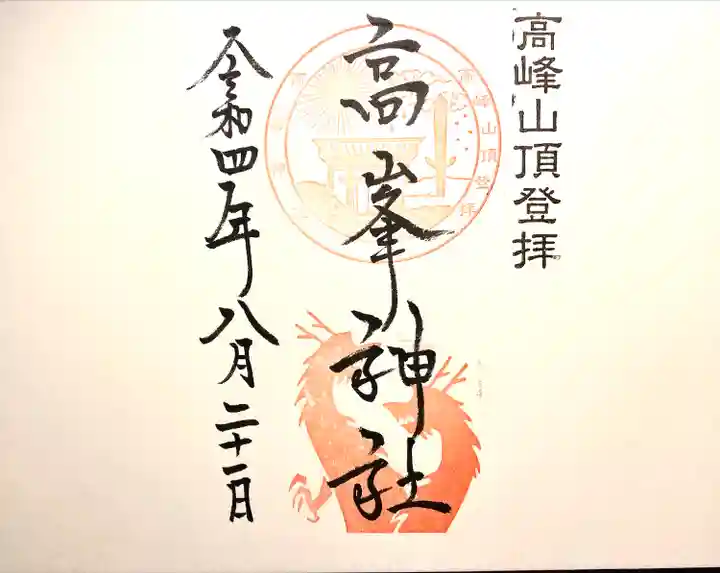 高峰山頂登拝
高峯神社
令和四年八月二十一日
高峰山頂登拝